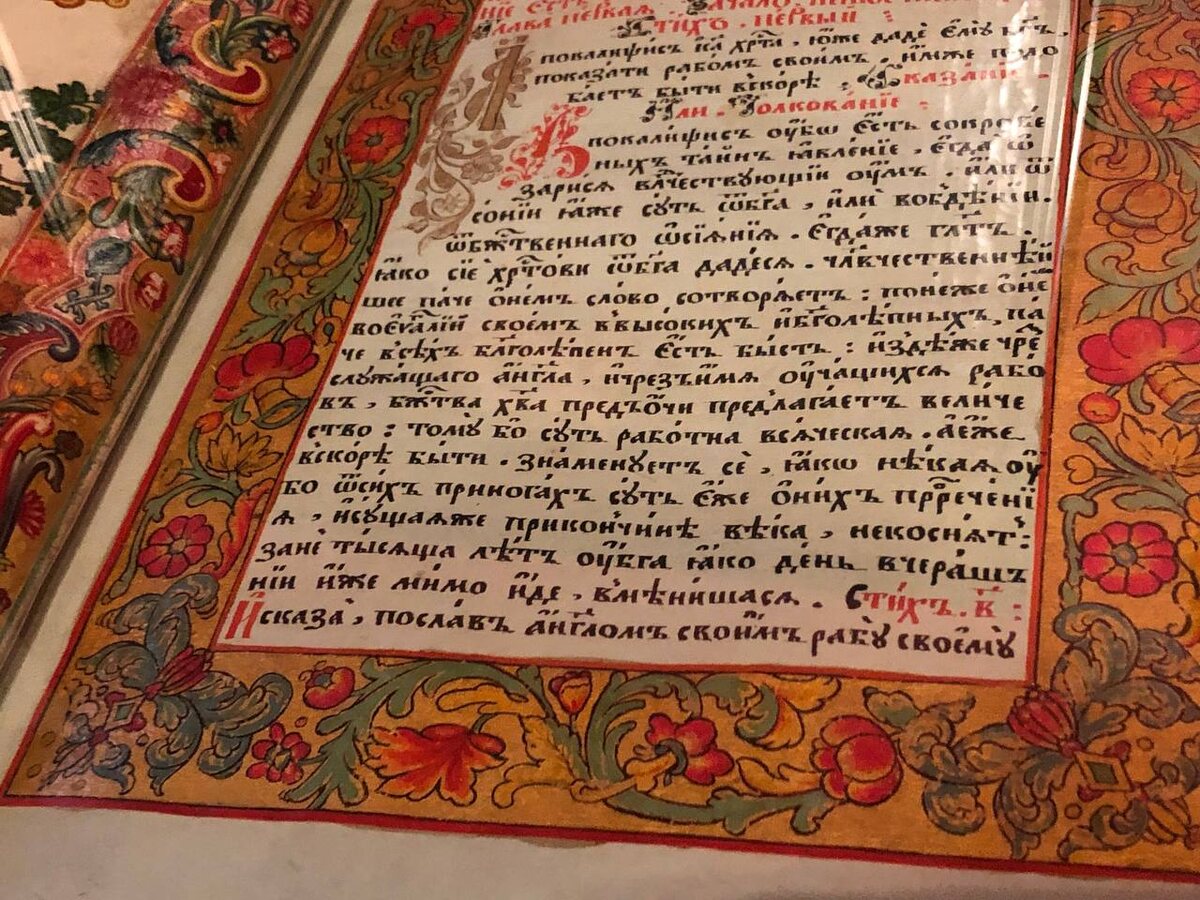 нїе єсть . Начало
Глава первая . Стихъ . первый :
Апокалиѱисъ їс҃ хр҃та , юже дадѐ є҆мꙋ̀ бг҃ъ ,
показа́ти рабо́мъ своимъ , и҆́мже подо
ба́етъ бы́ти вско́рѣ : Сказанїе .
И҆ли . Толкованїе :
А҆покали́ѱисъ ᲂу҆́бѡ є҆́сть сокрове́
ныхъ та́йнъ ꙗ҆влє́нїе , є҆гда̀ ѡ҆
заритсѧ влⷣчествующїи ᲂу҆́мъ . и҆лѝ ѿ
со́нїи ꙗ҆̀же сꙋ́ть ѿбг҃а , и҆лѝ вобдѣ́нїи .
ѿбж҃твеннаго ѡ҆сїѧ́нїѧ . Є҆гда́же гл҃тъ .
ꙗ҆́ко сїѐ хрⷭ҇то́ви ѿбг҃а даде́сѧ . чл҃вчественнѣ́й
шее па́че ѻ҆не́мъ сло́во сотворѧ́етъ : поне́же ѻ҆́нъ
воеѵⷢ҇а́лїи свое́мъ ввысо́кихъ и҆бг҃олѣ́пныхъ , па́
че всѣ́хъ бл҃голѣ́пенъ є҆́сть бы́стъ : и҆здѣ́же чре́
служа́щаго а҆́нгл҃а , и҆чрез̾и́мѧ ᲂу҆ча́щихсѧ рабо́
въ , бжⷭ҇тва̀ хв҃а пред̾ѻ́чи предлага́етъ вели́че
ство : томꙋ́ бо сꙋ́ть рабо́тна всѧ́ческаѧ . а҆є҆́же
вско́рѣ бы́ти . зна́менꙋетъ сѐ , ꙗ҆́кѡ нѣ́каѧ ᲂу҆́
бо ѿси́хъ принога́хъ сꙋ́ть є҆́же ѻ҆ни́хъ прⷪ҇рече́нї
ѧ , и҆сꙋ́щаѧже прикончи́нѣ вѣ́ка , некоснѧ́т̾ :
занѐ ты́сѧща лѣ́тъ ᲂу҆бг҃а ꙗ҆́ко де́нь вчера́шъ
нїи и҆́же ми́мо и҆́де , вмѣни́шасѧ . Сти́хъ . в҃ :
И҆сказа̀ , посла́въ а҆́нгл҃омъ свои́мъ рабꙋ̀ своемꙋ̀